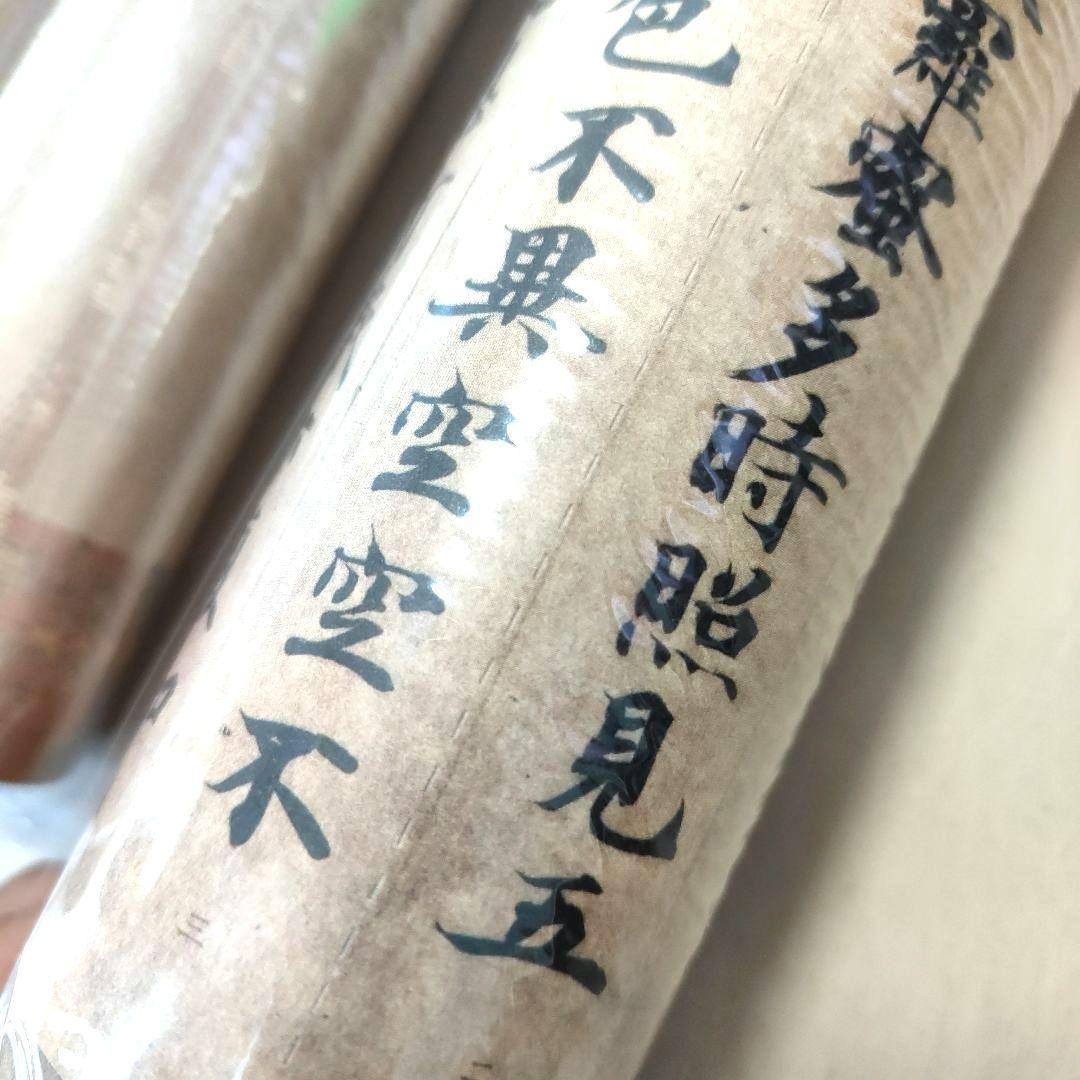 羅蜜多時照見五
色不異空空不
三